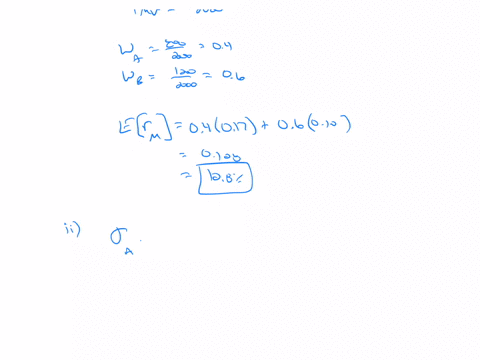 W_A = 800/2000 = 0.4
W_B = 120/2000 = 0.6
E[r_M] = 0.4(0.17) + 0.6(0.10)
= 0.128
= 12.8%
ii) σ_A